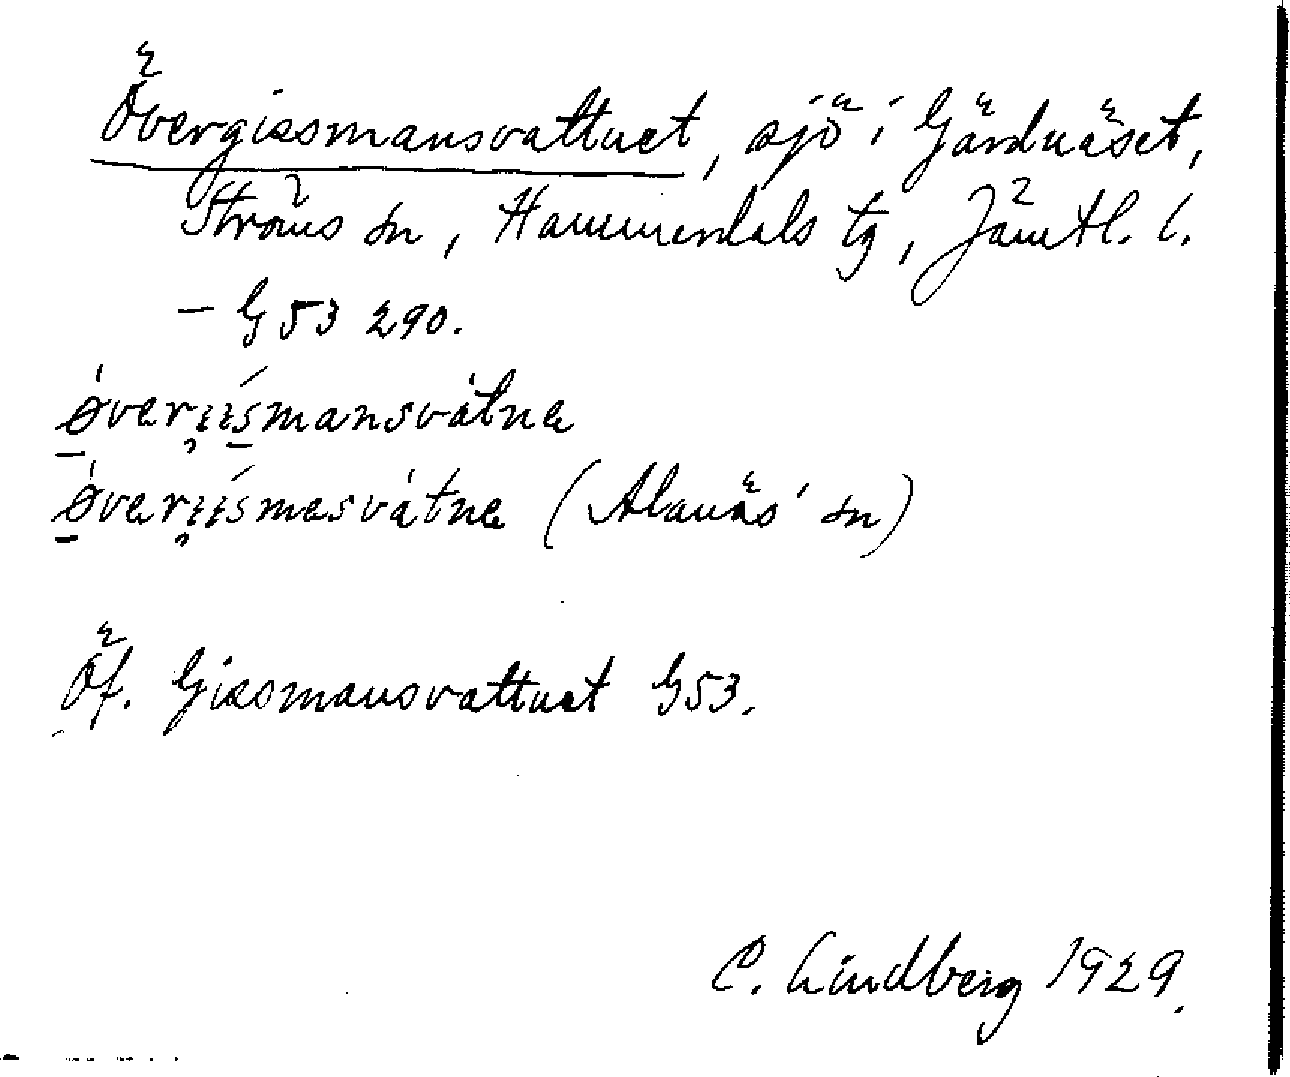 Övergissmansvattnet, sjö i Gärdnäset,
Ströms sn, Hammerdals tg, Jämtl. l.
– G 53 290.
ǿverı̣ı́smansvátne
ǿverı̣ı́smesvátne (Alanäs' sn)
Öf. Gissmansvattnet G53.
C. Lindberg 1929.